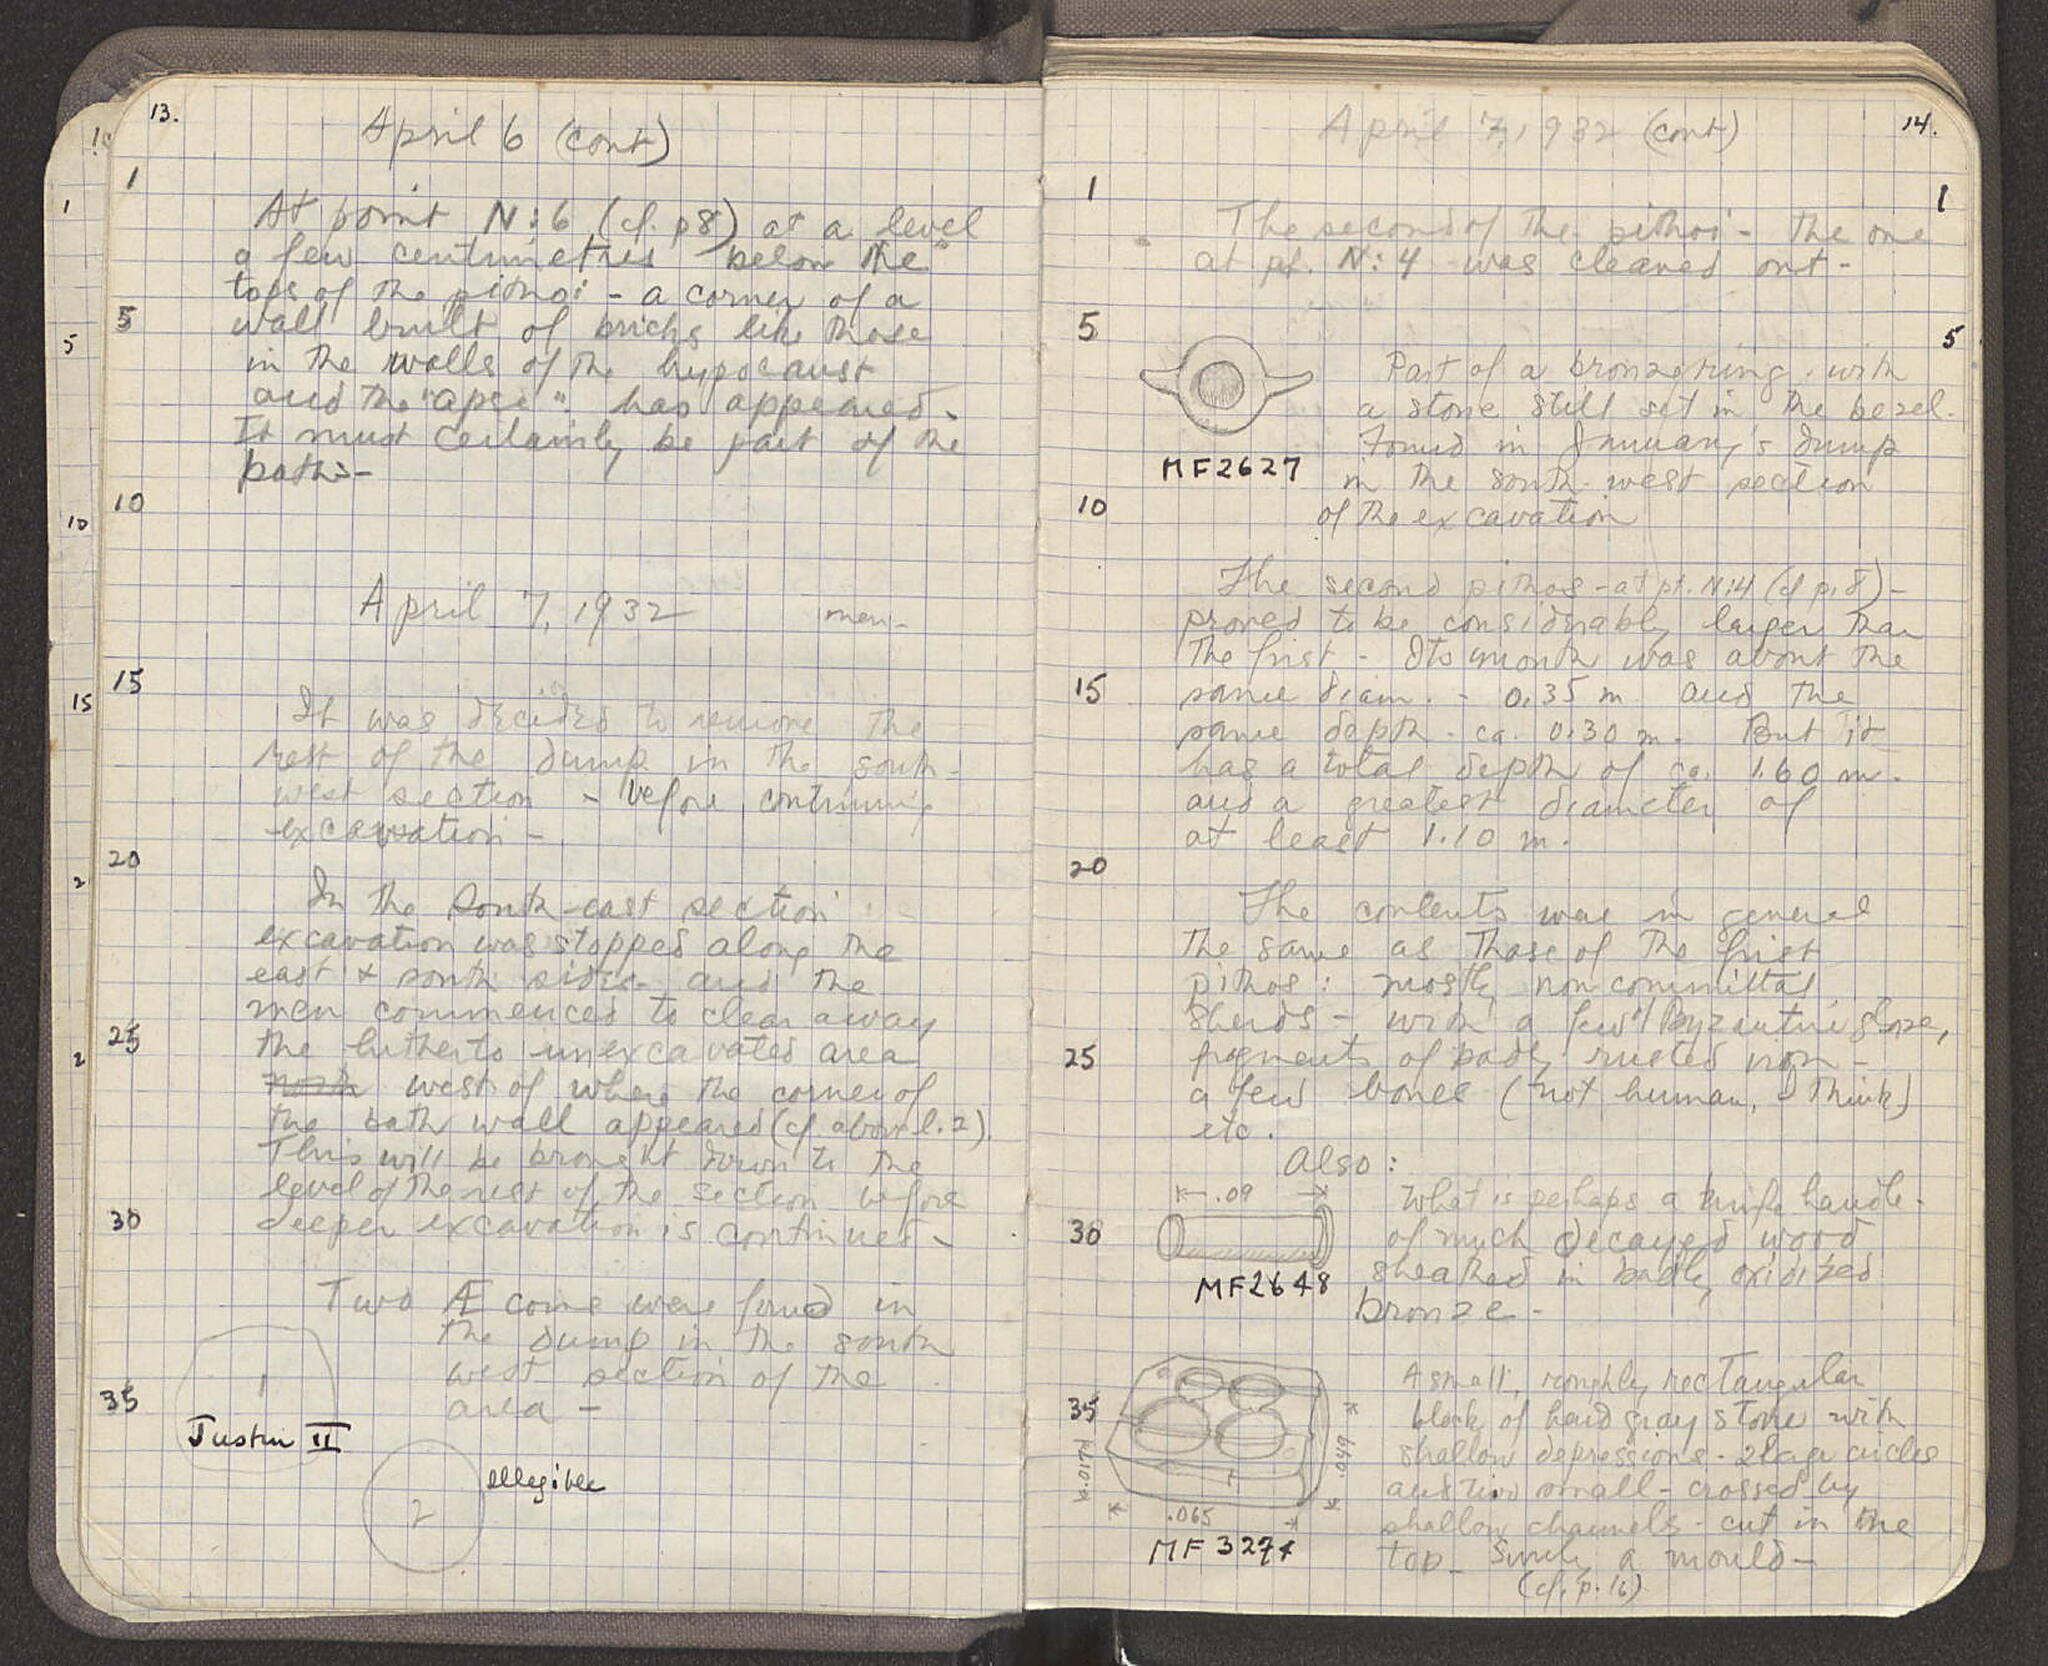 13.
April 6 (cont)
1
At point N:6 (cf. p8) at a level
a few centimetres below the
tops of the pithoi - a corner of a
5
wall built of bricks like those
in the walls of the hypocaust
and the "apse" has appeared -
It must certainly be part of the
bath: -
10
April 7, 1932 men -
15
It was decided to remove the
rest of the dump in the south-
west section - before continuing
excavation -
20
In the South-east section
excavation was stopped along the
east & south sides - and the
men commenced to clear away
25
the hitherto unexcavated area
north west of where the corner of
the bath wall appeared (cf. above l. 2).
This will be brought down to the
level of the rest of the section before
30
deeper excavation is continued -
Two Æ coins were found in
the dump in the south
west section of the
35
area -
1
Justin II
2
illegible
14.
April 7, 1932 (cont)
1
1
The second of the pithoi - the one
at pt. N:4 was cleaned out -
5
5
Part of a bronze ring - with
a stone still set in the bezel.
Found in January's dump
MF2627
in the south-west section
10
of the excavation
The second pithos - at pt. N:4 (cf p. 8) -
proved to be considerably larger than
the first - Its mouth was about the
15
same diam. - 0.35 m and the
same depth - ca. 0.30 m - But it
has a total depth of ca. 1.60 m.
and a greatest diameter of
at least 1.10 m.
20
The contents was in general
the same as those of the first
pithos: mostly noncommittal
sherds - with a few Byzantine glaze,
25
fragments of badly rusted iron -
a few bones (not human, I think)
etc.
Also:
.09
What is perhaps a knife handle -
30
of much decayed wood
sheathed in badly oxidized
MF2648
bronze -
A small, roughly rectangular
35
block of hard gray stone with
shallow depressions - 2 large circles
and two small - crossed by
shallow channels - cut in the
top - Surely a mould -
(cf. p. 16)
.017
.049
.065
MF 3274
1
5
10
15
2
2